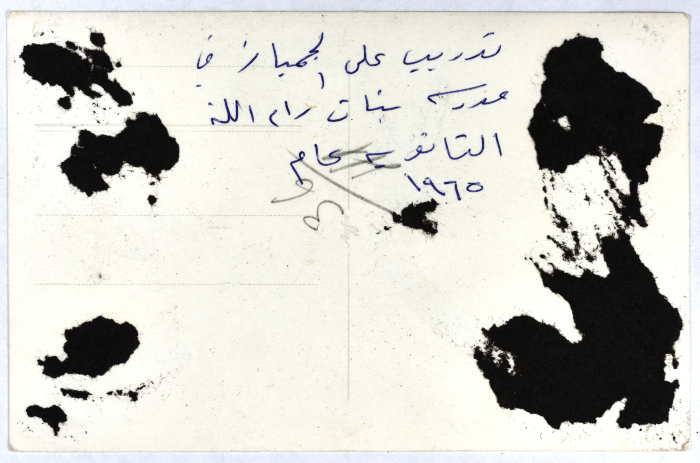 تدريب على الجمباز في
مدرسة بنات رام الله
الثانوية عام
١٩٦٥